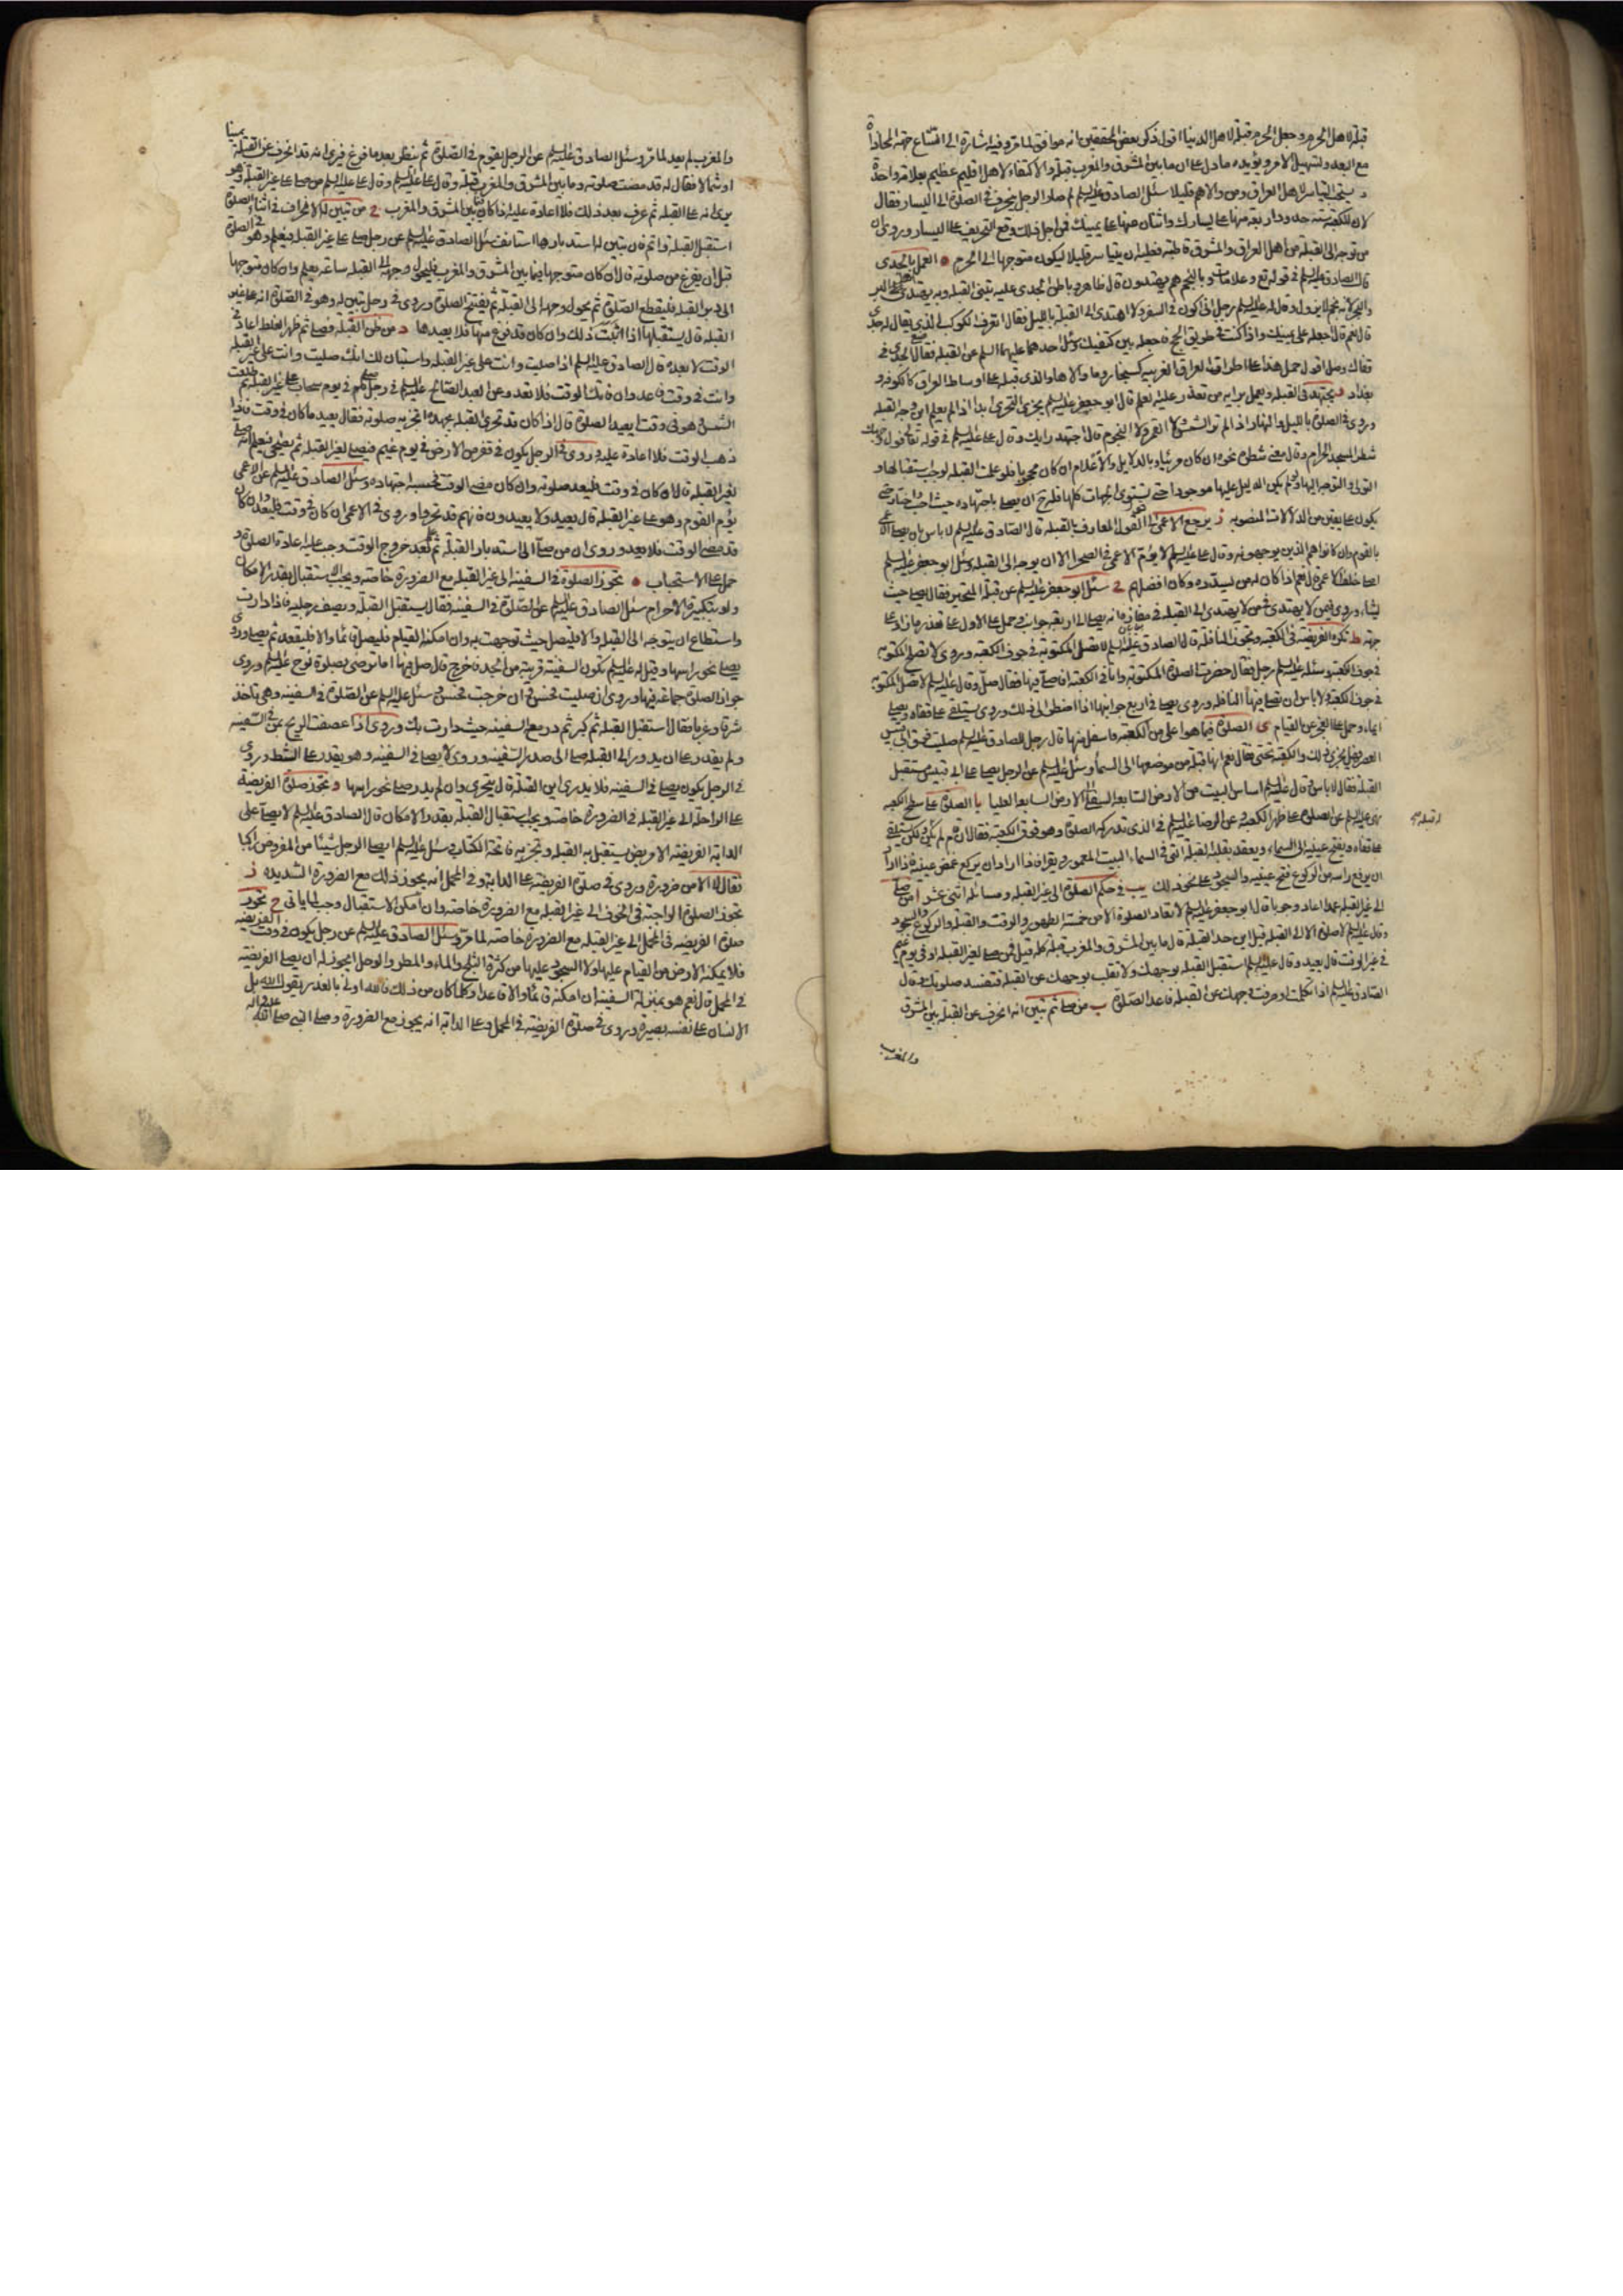 قبلة لاهل الحرم وجعل الحرم قبلة لاهل الدنيا اقول ذكر بعض المحققين انه موافق لما مر وفيه اشارة الى اتساع جهة المحاذاة
مع البعد ولتسهيل الامر ويؤيده ما دل على ان ما بين المشرق والمغرب قبلة والاكتفاء لاهل اقليم عظيم بعلامة واحدة
د يستحب التياسر لاهل العراق ومن والاهم قليلا سئل الصادق عليه السلم لم صار الرجل ينحرف في الصلوة الى اليسار فقال
لان للكعبة ستة حدود اربعة منها على يسارك واثنان منها على يمينك فمن اجل ذلك وقع التحريف على اليسار وروى ان
من توجه الى القبلة من اهل العراق والمشرق قاطبة فعليه ان يتياسر قليلا ليكون متوجها الى الحرم ه العمل بالجدى
قال الصادق عليه السلم في قوله تع وعلامات وبالنجم هم يهتدون قال ظاهر وباطن الجدى عليه تبنى القبلة وبه يهتدى اهل البر
والبحر لانه نجم لا يزول وقال له عليه السلم رجل انى اكون في السفر ولا اهتدى الى القبلة بالليل فقال اتعرف الكوكب الذى يقال له جدى
قال نعم قال اجعله على يمينك واذا كنت في طريق الحج فاجعله بين كتفيك وسئل احدهما عليهما السلم عن القبلة فقال ضع الجدى في
قفاك وصل اقول حمل هذا على اطراف العراق الغربية كسنجار وما والاها والذى قبله على اوساط العراق كالكوفة و
بغداد و يجتهد في القبلة ويعمل برايه من تعذر عليه العلم قال ابو جعفر عليه السلم يجزى التحرى ابدا اذا لم يعلم اين وجه القبلة
وروى في الصلوة بالليل والنهار اذا لم تر الشمس ولا القمر ولا النجوم قال اجتهد رايك وقال على عليه السلم في قوله تعالى فول وجهك
شطر المسجد الحرام وقال معنى شطره نحوه ان كان مرئيا وبالدلايل والاعلام ان كان محجوبا فلو علمت القبلة لوجب استقبالها و
التولى والتوجه اليها ولو لم يكن الدليل عليها موجودا حتى تستوى الجهات كلها فله ح ان يصلى باجتهاده حيث احب واختار حتى
يكون على يقين من الدلالات المنصوبة ز يرجع الاعمى الى قول العارف بالقبلة قال الصادق عليه السلم لا باس بان يصلى الاعمى
بالقوم وان كانوا هم الذين يوجهونه وقال على عليه السلم لا يؤم الاعمى في الصحرا الا ان يوجه الى القبلة وسئل ابو جعفر عليه السلم
اصلى خلف الاعمى قال نعم اذا كان له من يسدده وكان افضلهم ح سئل ابو جعفر عليه السلم عن قبلة المتحير فقال يصلى حيث
يشاء وروى فيمن لا يهتدى الى القبلة في مفازة انه يصلى الى اربعة جوانب وحمل على
جهة ط تكره الفريضة في الكعبة وتجوز النافلة قال الصادق عليه السلم لا تصل المكتوبة في جوف الكعبة وروى لا تصلح المكتوبة
في جوف الكعبة وسئله عليه السلم رجل فقال حضرت الصلوة المكتوبة وانا في الكعبة افاصلى فيها فقال صل وقال عليه السلم لا تصل المكتوبة
في جوف الكعبة ولا باس ان تصلى فيها النافلة وروى يصلى في اربع جوانبها اذا اضطر الى ذلك وروى يستلقى على قفاه ويصلى
ايماء وحمل على العجز عن القيام ى الصلوة فيما هو اعلى من الكعبة واسفل منها قال رجل للصادق عليه السلم صليت فوق ابى قبيس
العصر فهل يجزى ذلك والكعبة تحتى فقال نعم انها قبلة من موضعها الى السماء وسئل عليه السلم عن الرجل يصلى على ابى قبيس مستقبل
القبلة فقال لا باس وقال عليه السلم اساس البيت من الارض السابعة السفلى الى الارض السابعة العليا يا الصلوة على سطح الكعبة
نهى عليه السلم عن الصلوة على ظهر الكعبة وعن الرضا عليه السلم في الذى تدركه الصلوة وهو فوق الكعبة فقال ان قام لم يكن له قبلة ولكن يستلقى
على قفاه ويفتح عينيه الى السماء ويعقد بقلبه القبلة التى في السماء البيت المعمور ويقرا فاذا اراد ان يركع غمض عينيه فاذا اراد
ان يرفع راسه من الركوع فتح عينيه والسجود على نحو ذلك يب في حكم الصلوة الى غير القبلة ومسائله اثنى عشر ا من صلى
الى غير القبلة عمدا اعاد وجوبا قال ابو جعفر عليه السلم لا تعاد الصلوة الا من خمسة الطهور والوقت والقبلة والركوع والسجود
وقال عليه السلم لا صلوة الا الى القبلة قيل اين حد القبلة قال ما بين المشرق والمغرب قبلة كله قيل فمن صلى لغير القبلة او في يوم غيم
في غير الوقت قال يعيد وقال عليه السلم استقبل القبلة بوجهك ولا تقلب بوجهك عن القبلة فتفسد صلوتك وقال
الصادق عليه السلم اذا تكلمت او صرفت وجهك عن القبلة فاعد الصلوة ب من صلى ثم تبين انه انحرف عن القبلة بين المشرق
والمغرب
والمغرب لم يعد لما مر وسئل الصادق عليه السلم عن الرجل يقوم في الصلوة ثم ينظر بعد ما فرغ فيرى انه قد انحرف عن القبلة يمينا
او شمالا فقال له قد مضت صلوته وما بين المشرق والمغرب قبلة وقال على عليه السلم من صلى على غير القبلة وهو
يرى انه على القبلة ثم عرف بعد ذلك فلا اعادة عليه اذا كان فيما بين المشرق والمغرب ج من تبين له الانحراف في اثناء الصلوة
استقبل القبلة واتم فان تبين له استدبارها استانف سئل الصادق عليه السلم عن رجل صلى على غير القبلة فيعلم وهو في الصلوة
قبل ان يفرغ من صلوته قال ان كان متوجها فيما بين المشرق والمغرب فليحول وجهه الى القبلة ساعة يعلم وان كان متوجها
الى دبر القبلة فليقطع الصلوة ثم يحول وجهه الى القبلة ثم يفتتح الصلوة وروى في رجل تبين له وهو في الصلوة انه على غير
القبلة قال يستقبلها اذا اثبت ذلك وان كان قد فرغ منها فلا يعيدها د من ظن القبلة فصلى ثم ظهر الغلط اعاد في
الوقت لا بعده قال الصادق عليه السلم اذا صليت وانت على غير القبلة واستبان لك انك صليت وانت على غير القبلة
وانت في وقت فاعد وان فاتك الوقت فلا تعد وعن العبد الصالح عليه السلم في رجل صلى في يوم سحاب على غير القبلة ثم طلعت
الشمس وهو في وقت ايعيد الصلوة قال اذا كان قد تحرى القبلة بجهده اتجزيه صلوته فقال يعيد ما كان في وقت فاذا
ذهب الوقت فلا اعادة عليه وروى في الرجل يكون في قفر من الارض في يوم غيم فيصلى لغير القبلة ثم يضحى فيعلم انه صلى
لغير القبلة قال ان كان في وقت فليعد صلوته وان كان مضى الوقت فحسبه اجتهاده وسئل الصادق عليه السلم عن الاعمى
يؤم القوم وهو على غير القبلة قال يعيد ولا يعيدون فانهم قد تحروا وروى في الاعمى ان كان في وقت فليعد وان كان
قد مضى الوقت فلا يعيد وروى ان من صلى الى استدبار القبلة ثم علم بعد خروج الوقت وجب عليه اعادة الصلوة و
حمل على الاستحباب ه تجوز الصلوة في السفينة الى غير القبلة مع الضرورة خاصة ويجب الاستقبال بقدر الامكان
ولو بتكبيرة الاحرام سئل الصادق عليه السلم عن الصلوة في السفينة فقال يستقبل القبلة ويصف رجليه فاذا دارت
واستطاع ان يتوجه الى القبلة والا فليصل حيث توجهت به وان امكنه القيام فليصل قائما والا فليقعد ثم يصلى وروى
يصلى نحو راسها وقيل له عليه السلم تكون السفينة قريبة من الجد فاخرج قال صل فيها اما ترضى بصلوة نوح عليه السلم وروى
جواز الصلوة جماعة فيها وروى ان صليت فحسن وان خرجت فحسن وسئل عليه السلم عن الصلوة في السفينة وهى تاخذ
شرقا وغربا فقال استقبل القبلة ثم كبر ثم در مع السفينة حيث دارت بك وروى اذا عصفت الريح بمن في السفينة
ولم يقدر على ان يدور الى القبلة صلى الى صدر السفينة وروى لا يصلى في السفينة وهو يقدر على الشط وروى
في الرجل يكون يصلى في السفينة فلا يدرى اين القبلة قال يتحرى وان لم يدر صلى نحو راسها و تجوز صلوة الفريضة
على الراحلة الى غير القبلة في الضرورة خاصة ويجب استقبال القبلة بقدر الامكان قال الصادق عليه السلم لا يصلى على
الدابة الفريضة الا مريض يستقبل به القبلة وتجزيه فاتحة الكتاب وسئل عليه السلم ايصلى الرجل شيئا من المفروض راكبا
فقال لا الا من ضرورة وروى في صلوة الفريضة على الدابة وفي المحمل انه يجوز ذلك مع الضرورة الشديدة ز
تجوز الصلوة الواجبة في الخوف الى غير القبلة مع الضرورة خاصة وان امكن الاستقبال وجب لما ياتى ح تجوز
صلوة الفريضة في المحمل الى غير القبلة مع الضرورة خاصة لما مر وسئل الصادق عليه السلم عن رجل يكون في وقت الفريضة
فلا يمكنه الارض من القيام عليها ولا السجود عليها من كثرة الثلج والماء والمطر والوحل ايجوز له ان يصلى الفريضة
في المحمل قال نعم هو بمنزلة السفينة ان امكنه قائما والا قاعدا وكلما كان من ذلك فالله اولى بالعذر يقول الله بل
الانسان على نفسه بصيرة وروى في صلوة الفريضة في المحمل وعلى الدابة انه يجوز مع الضرورة وصلى النبى صلى الله عليه واله